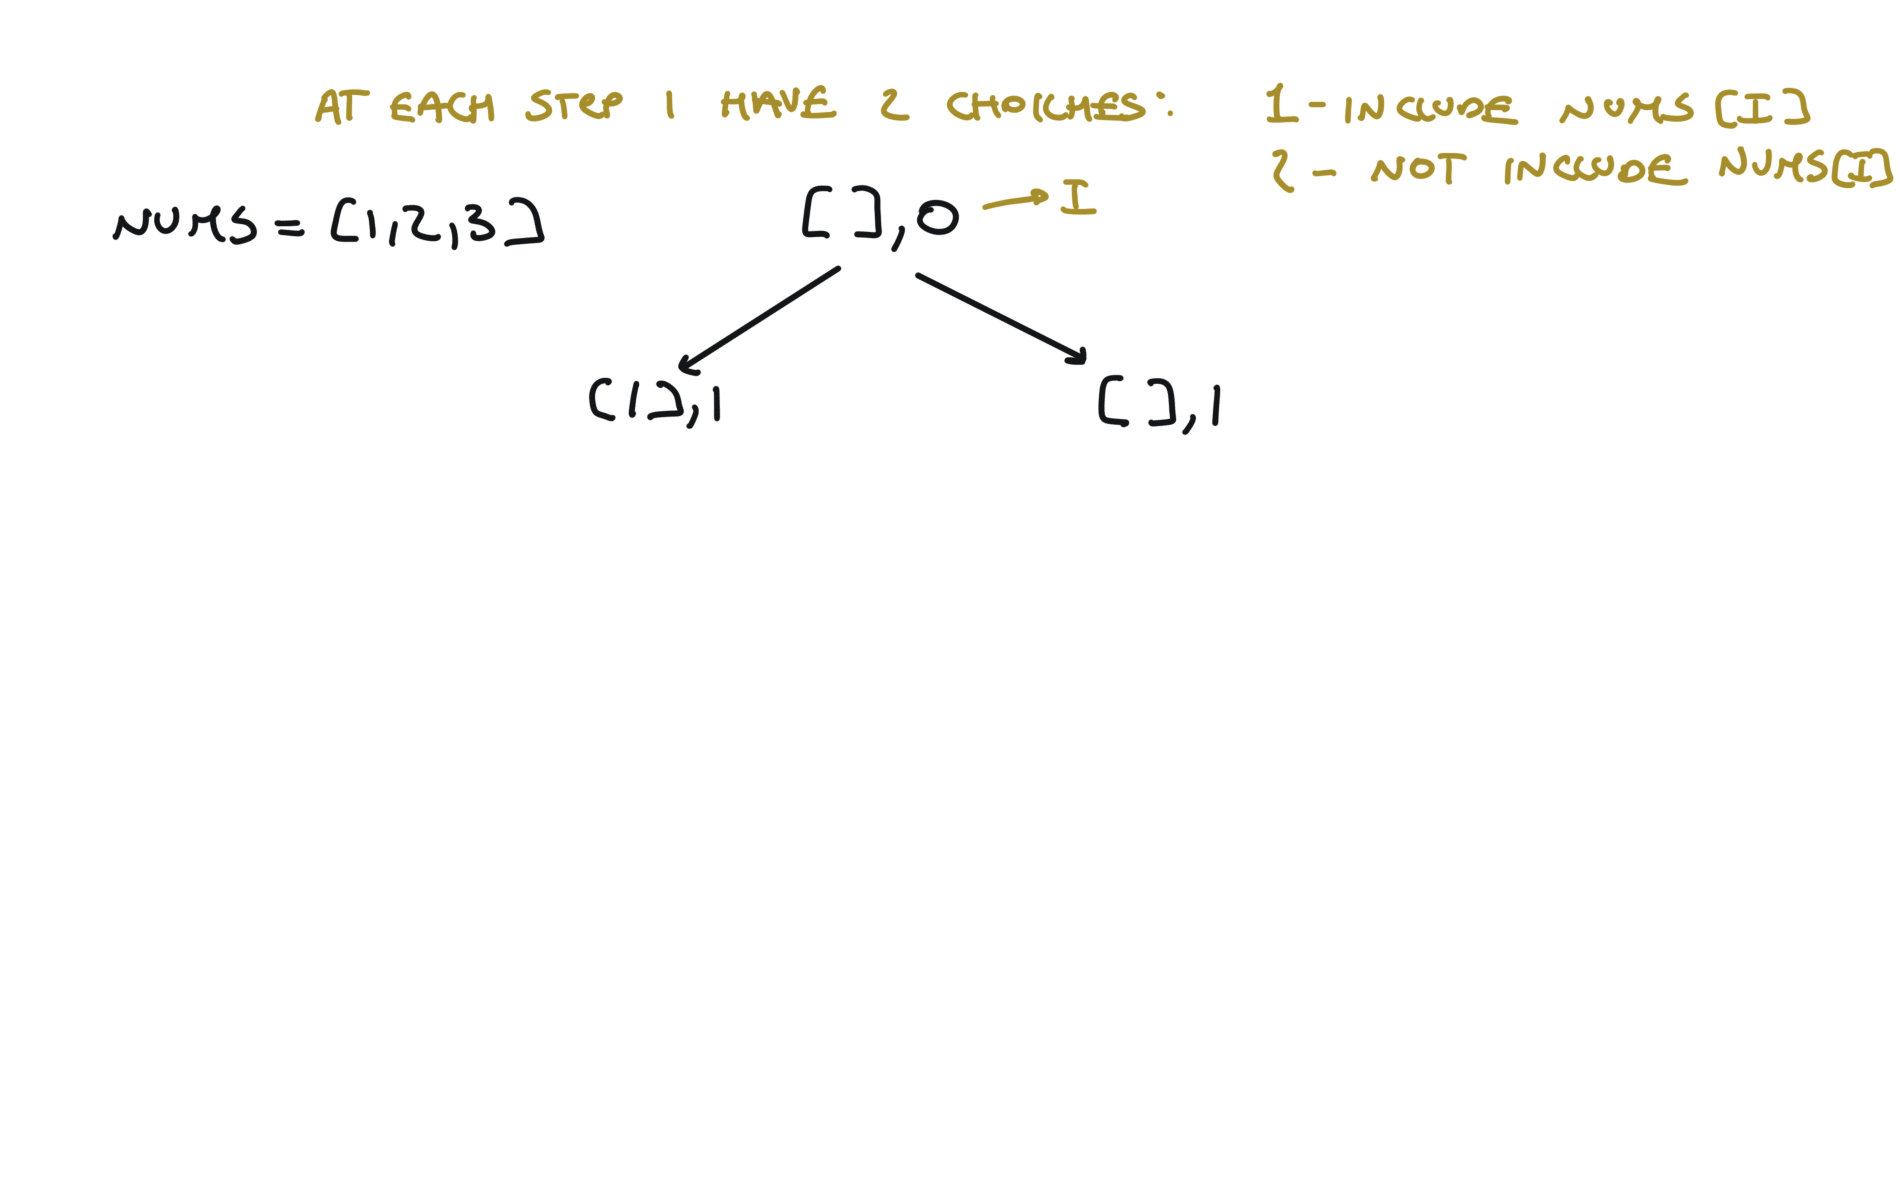 AT EACH STEP I HAVE 2 CHOICHES: 1 - INCLUDE NUMS [I]
2 - NOT INCLUDE NUMS[I]
NUMS = [1,2,3]
[ ],0 → I
[1],1
[ ],1